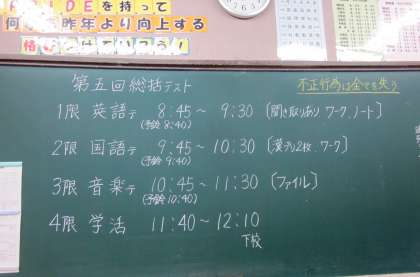 IDEを持って
何事も昨年より向上する
第五回総括テスト
不正行為は全てを失う
1限 英語テ 8:45～ 9:30 〔聞き取りあり ワーク、ノート〕
(予鈴 8:40)
2限 国語テ 9:45～ 10:30 〔漢テリ2枚、ワーク〕
(予鈴 9:40)
3限 音楽テ 10:45～ 11:30 〔ファイル〕
(予鈴 10:40)
4限 学活 11:40～12:10
下校